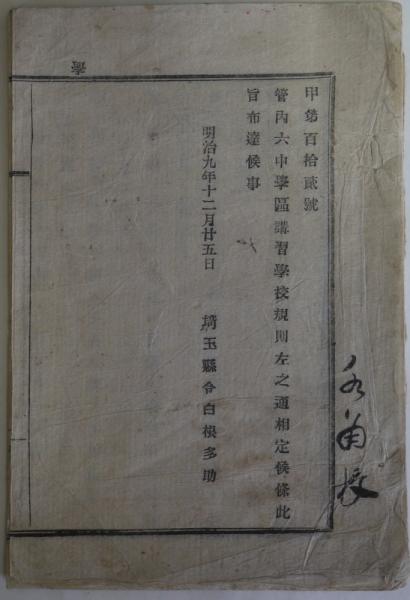 甲第百拾貳號
管內六中學區講習學校規則左之通相定候條此
旨布達候事
明治九年十二月廿五日
埼玉縣令白根多助